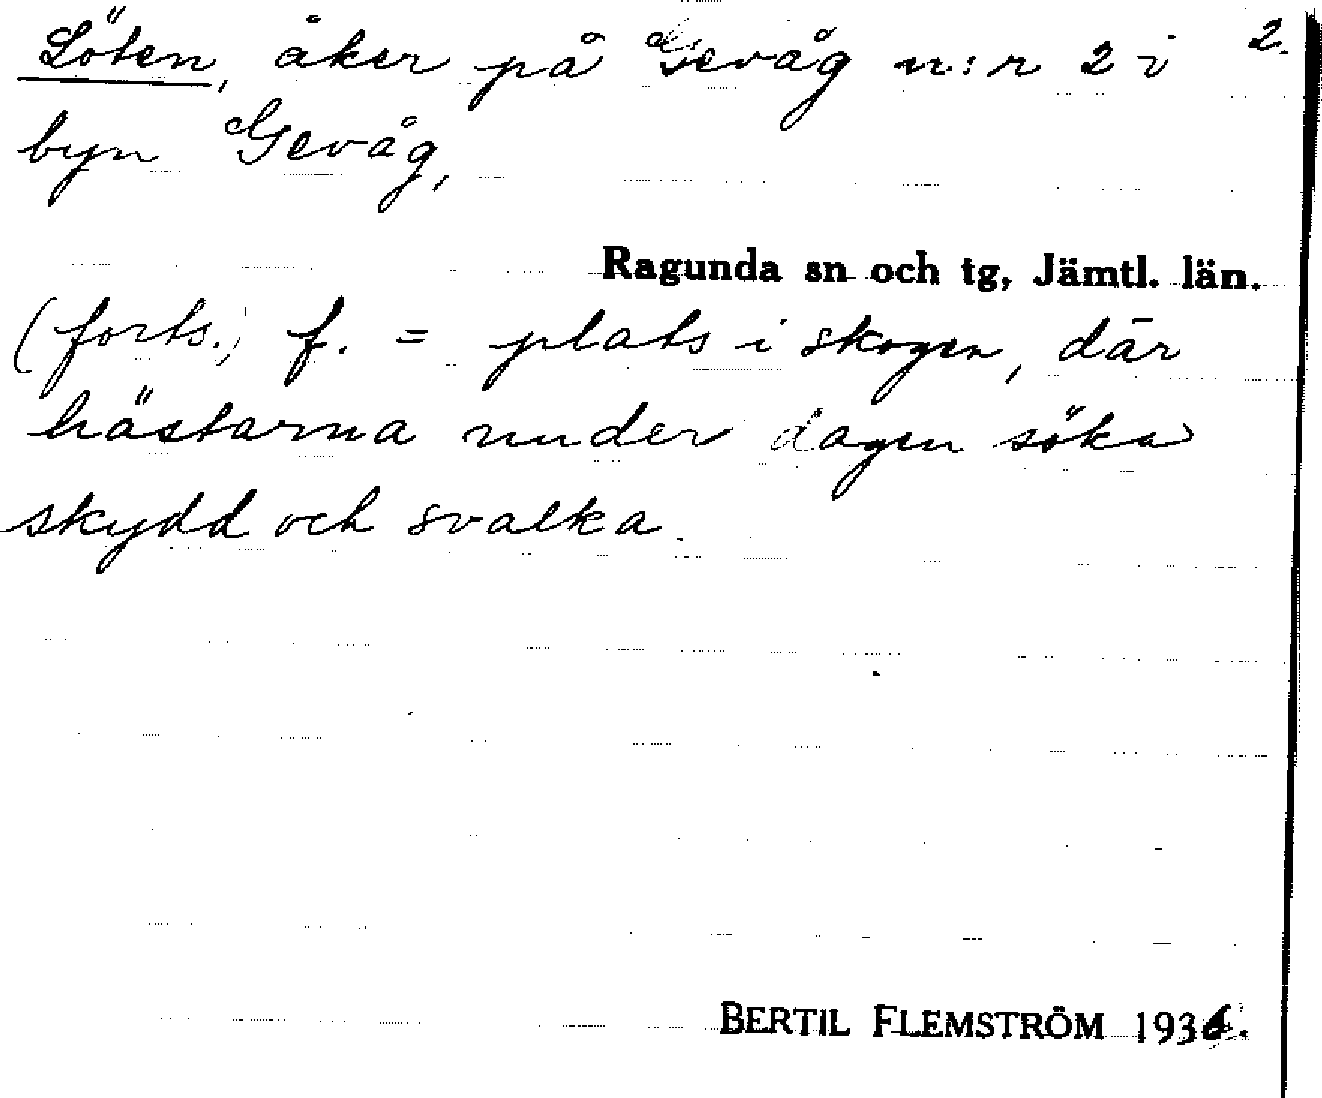 Löten, åker på Gevåg n:r 2 i 2.
byn Gevåg,
Ragunda sn och tg, Jämtl. län.
(forts.) f. = plats i skogen, där
hästarna under dagen söka
skydd och svalka.
BERTIL FLEMSTRÖM 1936.